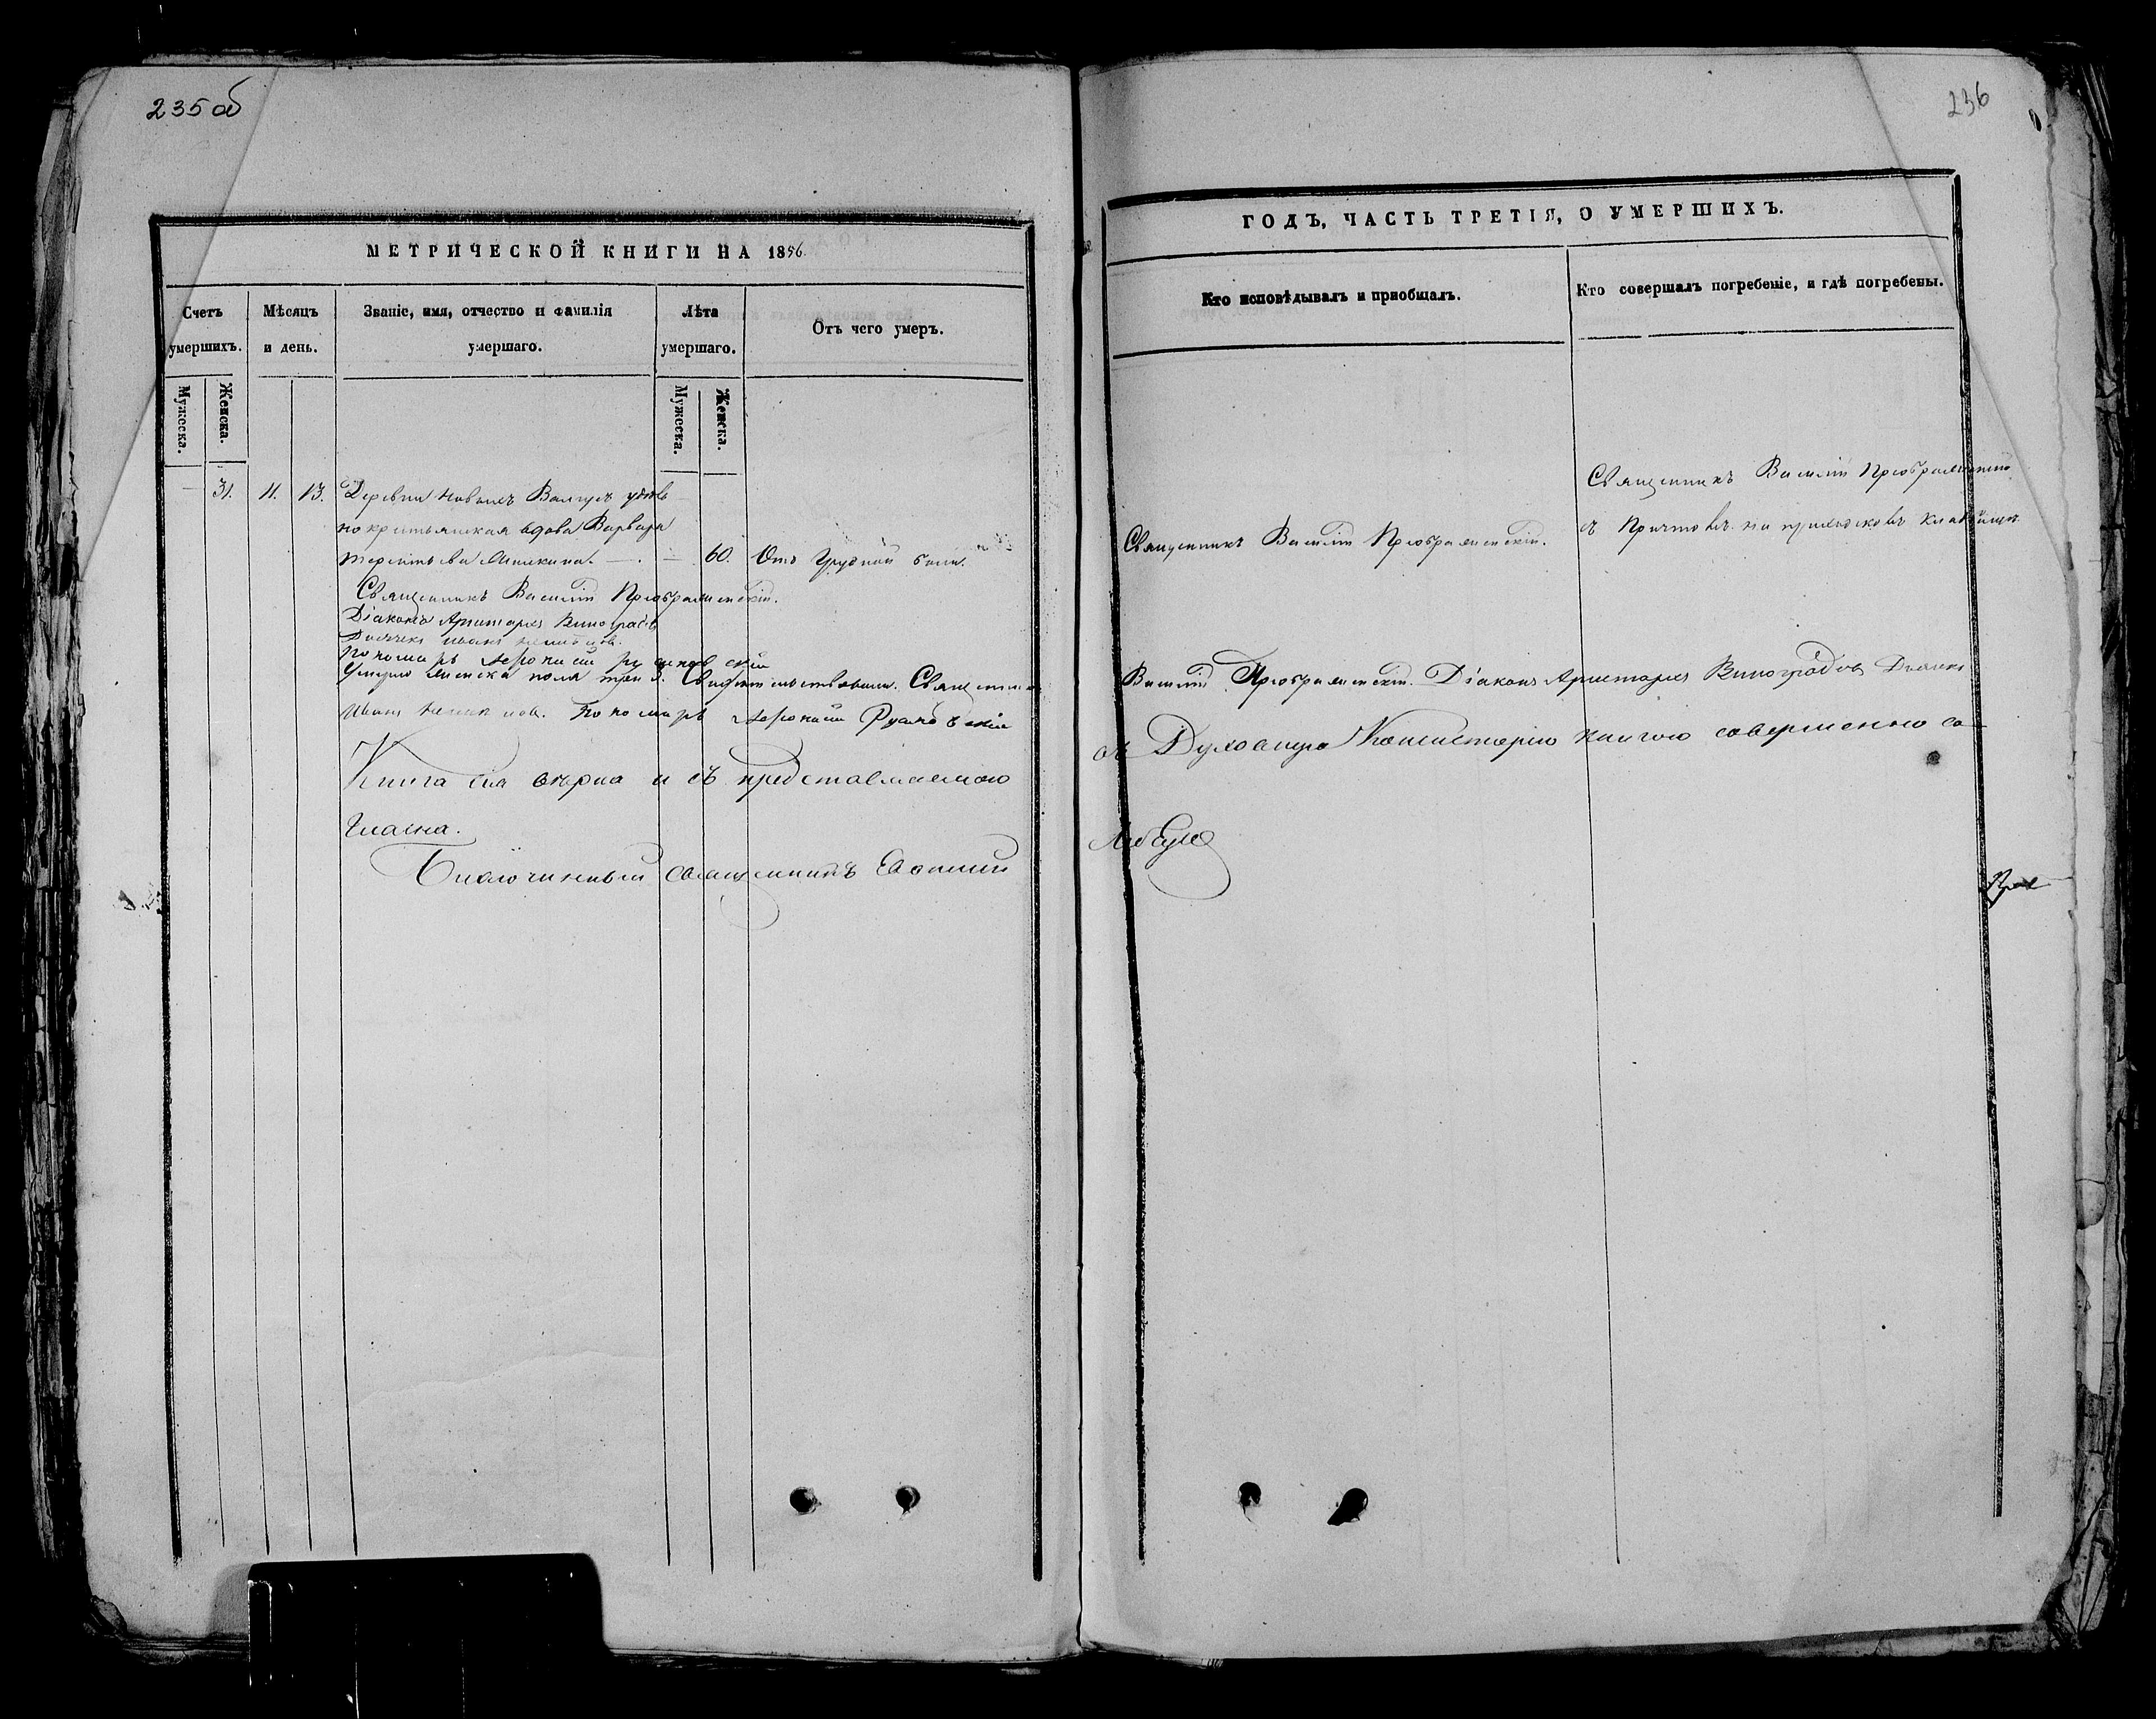 235 об
МЕТРИЧЕСКОЙ КНИГИ НА 1856
Счетъ умершихъ.
Мужеска.
Женска.
Мѣсяцъ и день.
Званіе, имя, отчество и фамилія умершаго.
Лѣта умершаго.
Мужеска.
Женска.
Отъ чего умеръ.
— 31. 11. 13. Деревни Новыхъ удѣль
но крестьянская вдова Варвара
— 60. Отъ Грудной боли.
Священникъ Василій Преображенскій.
Діаконъ Аристархъ Виноградовъ
Дьячекъ Иванъ
Пономарь
Умерло женска пола три 3. Свидѣтельствовали. Священникъ
Иванъ Пономарь
Книга сія вѣрна и съ представляемою
гласна.
Благочинный священникъ Евфимій
236
ГОДЪ, ЧАСТЬ ТРЕТІЯ, О УМЕРШИХЪ.
Кто исповѣдывалъ и пріобщалъ.
Кто совершалъ погребеніе, и гдѣ погребены.
Священникъ Василій Преображенскій
Священникъ Василій Преображенскій.
съ Причтомъ на приходскомъ кладбищѣ.
Василій Преображенскій. Діаконъ Аристархъ Виноградовъ Дьячекъ
въ Духовную Консисторію книгою совершенно со-